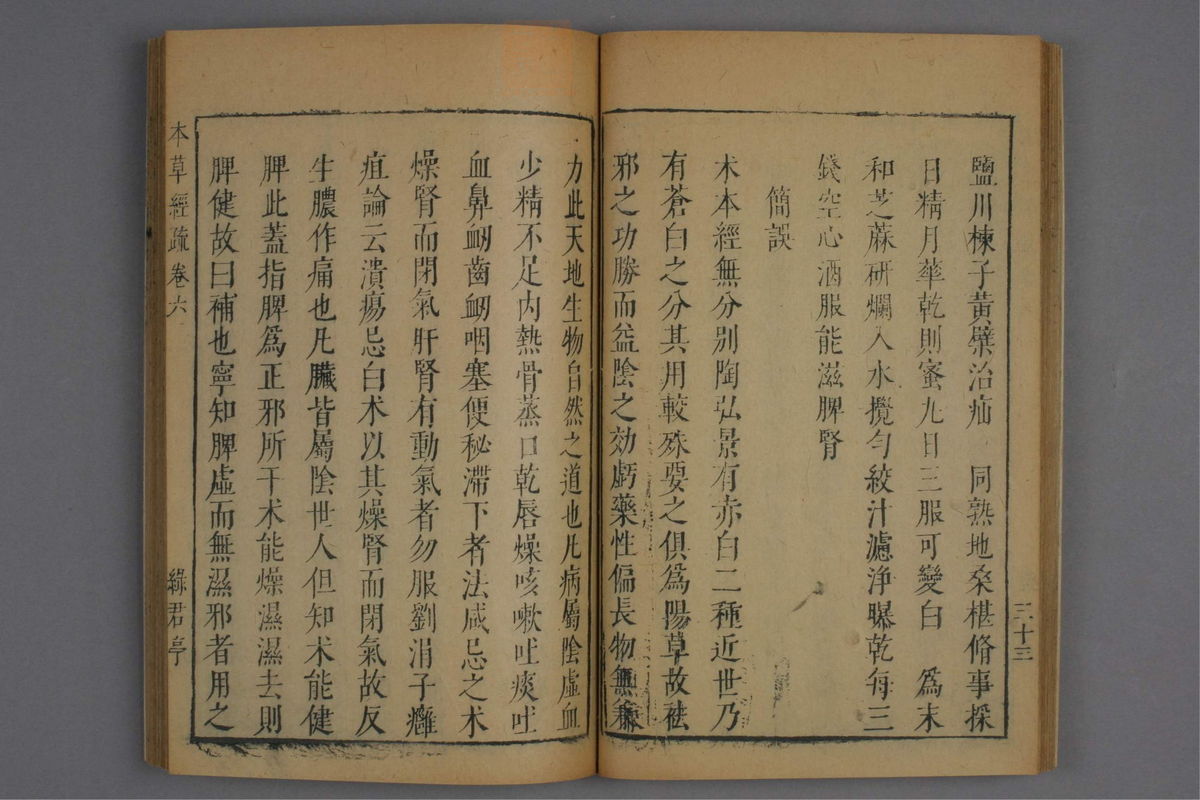 鹽川楝子黃檗治疝 同熟地桑椹脩事採
日精月華乾則蜜丸日三服可變白 為末
和芝蔴研爛入水攪勻絞汁濾淨曝乾每三
錢空心酒服能滋脾腎
簡誤
术本經無分別陶弘景有赤白二種近世乃
有蒼白之分其用較殊要之俱為陽草故祛
邪之功勝而益陰之効虧藥性偏長物無兼
力此天地生物自然之道也凡病屬陰虛血
少精不足內熱骨蒸口乾唇燥咳嗽吐痰吐
血鼻衂齒衂咽塞便秘滯下者法咸忌之术
燥腎而閉氣肝腎有動氣者勿服劉涓子癰
疽論云潰瘍忌白术以其燥腎而閉氣故反
生膿作痛也凡臟皆屬陰世人但知术能健
脾此蓋指脾為正邪所干术能燥濕濕去則
脾健故曰補也寧知脾虛而無濕邪者用之
三十三
本草經疏 卷六
綠君亭